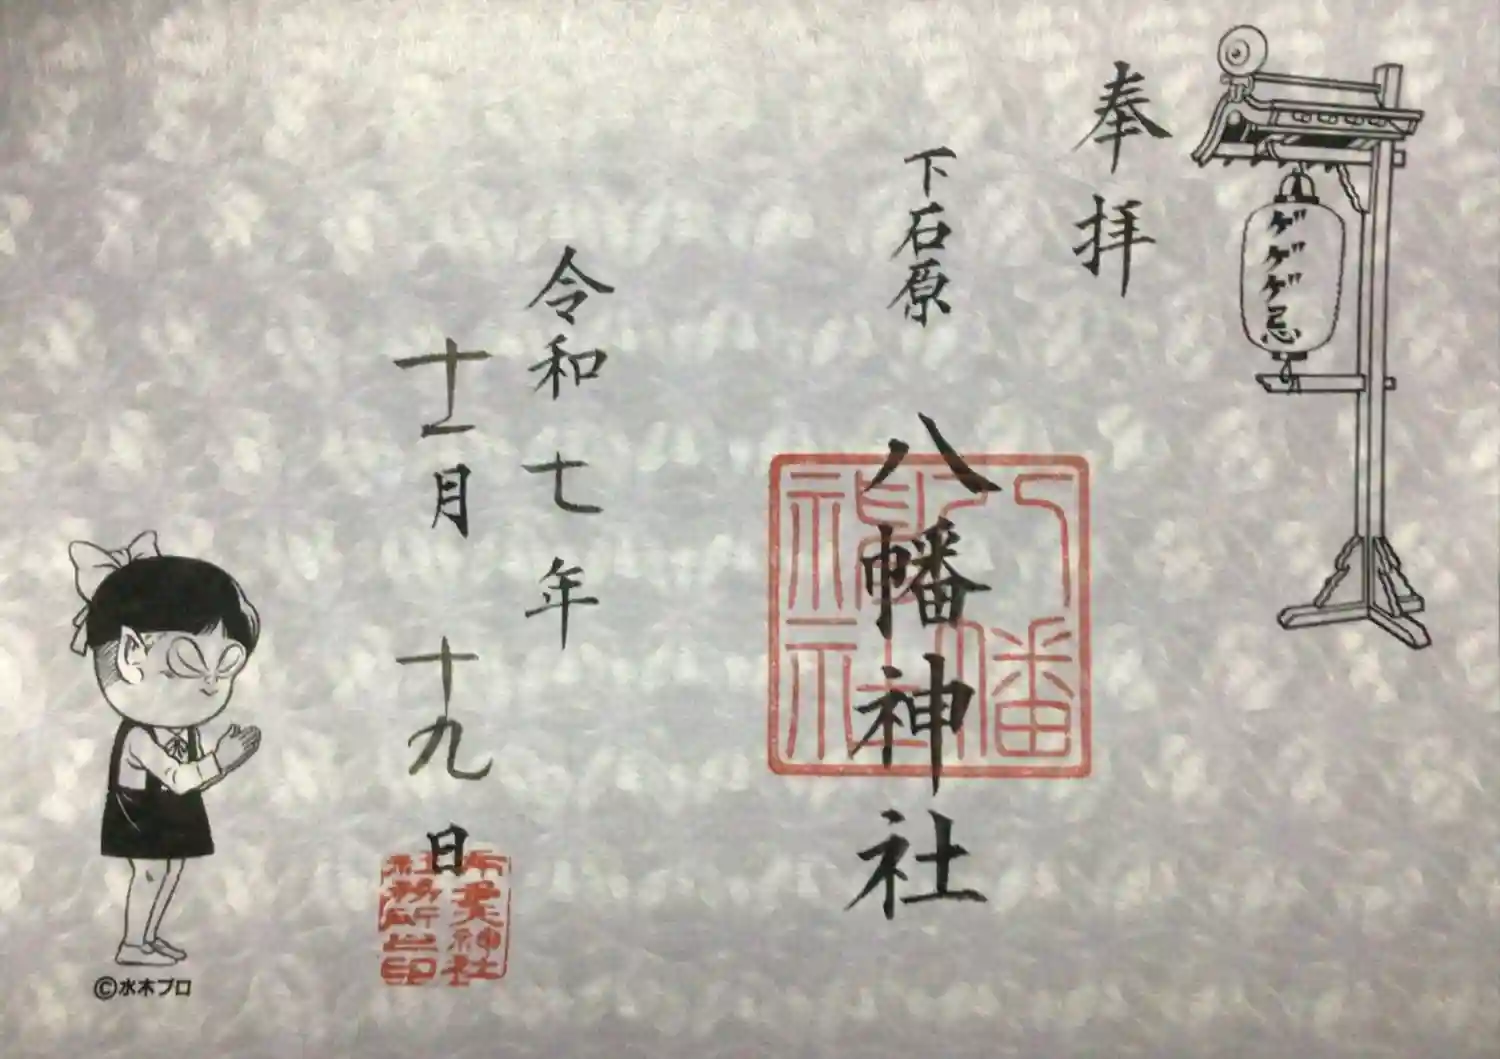 ゲゲゲ忌
奉拝
下石原
八幡神社
八幡神社
令和七年
十一月
十九日
布多天神社
社務所之印
©水木プロ